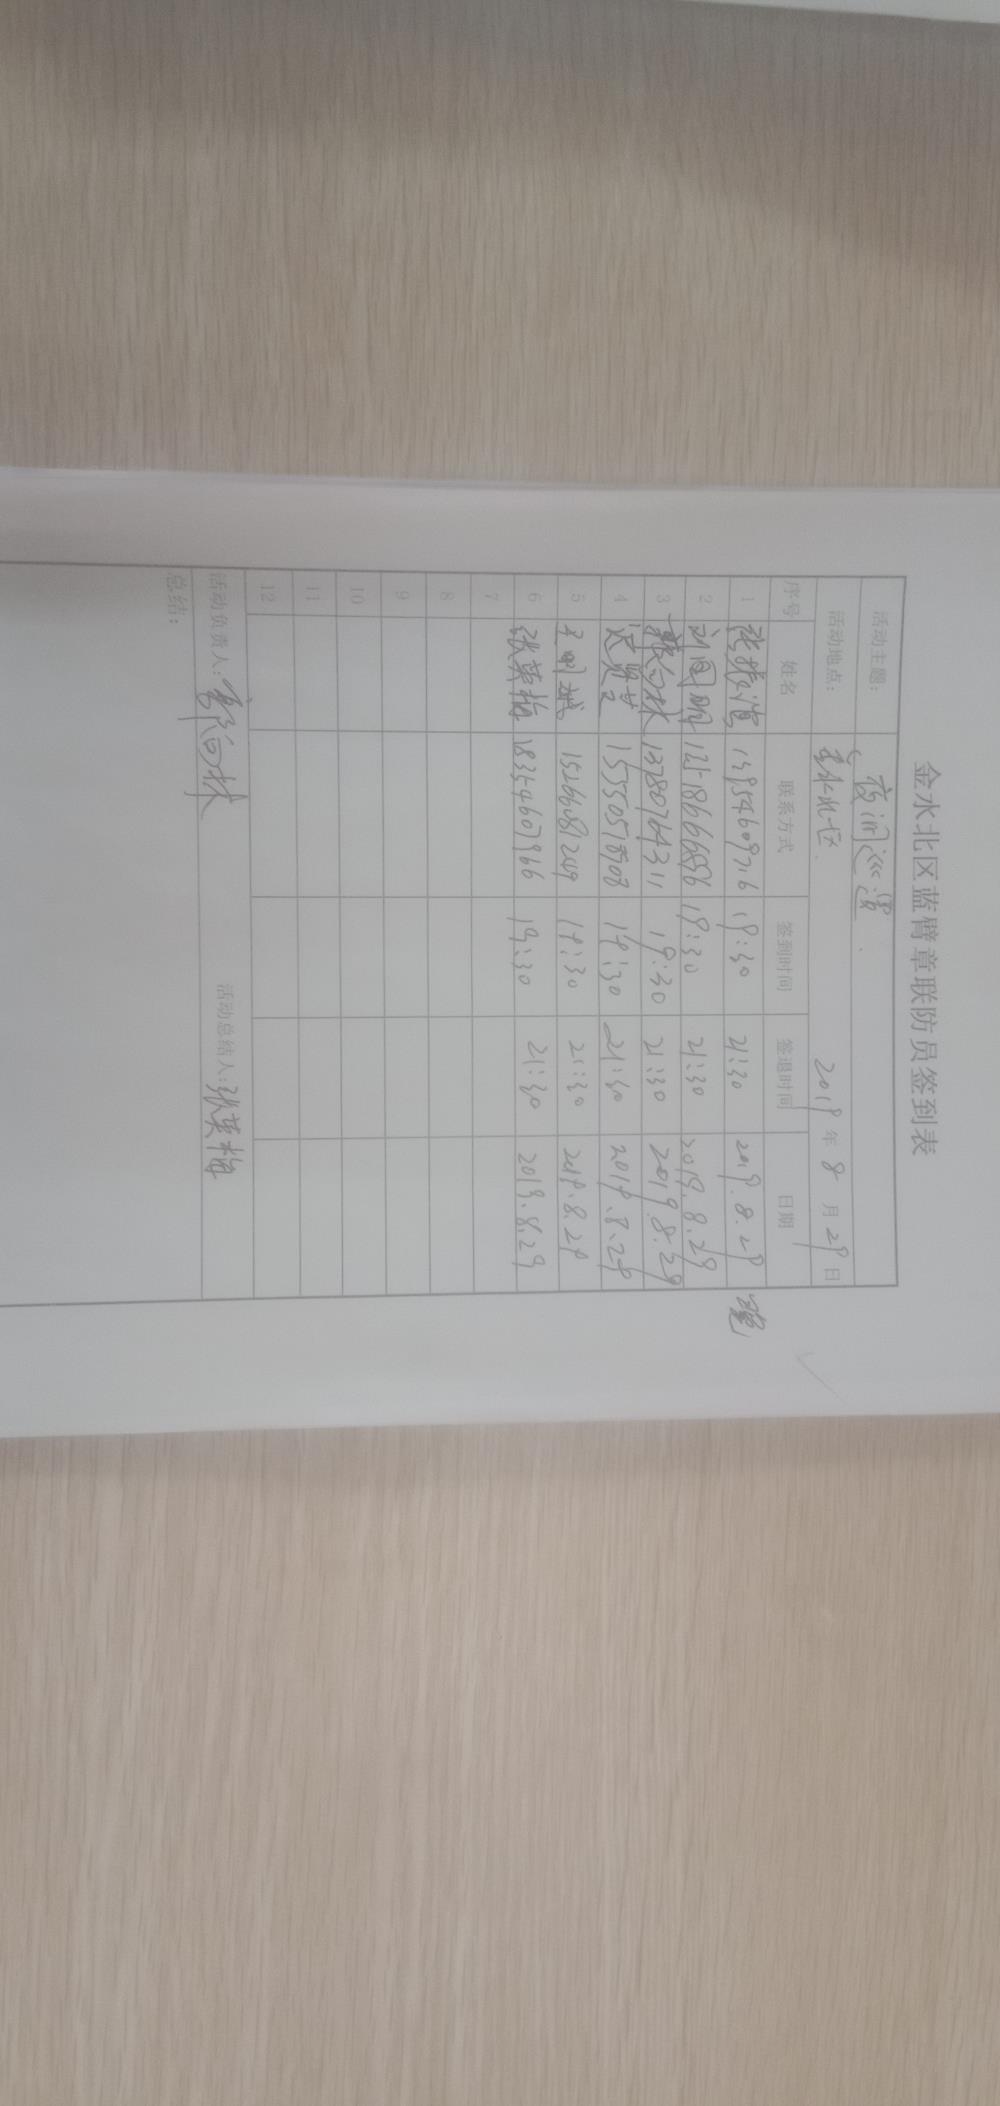 金水北区蓝臂章联防员签到表
活动主题： 夜间巡逻
活动地点： 金水北区 2019 年 8 月 29 日
序号 姓名 联系方式 签到时间 签退时间 日期
1 19:30 21:30 2019.8.29
2 刘国明 19:30 21:30 2019.8.29
3 13780764311 19:30 21:30 2019.8.29
4 15550518908 19:30 21:30 2019.8.29
5 15266687249 19:30 21:30 2019.8.29
6 张英梅 18354607966 19:30 21:30 2019.8.29
7
8
9
10
11
12
活动负责人： 活动总结人：张英梅
总结：